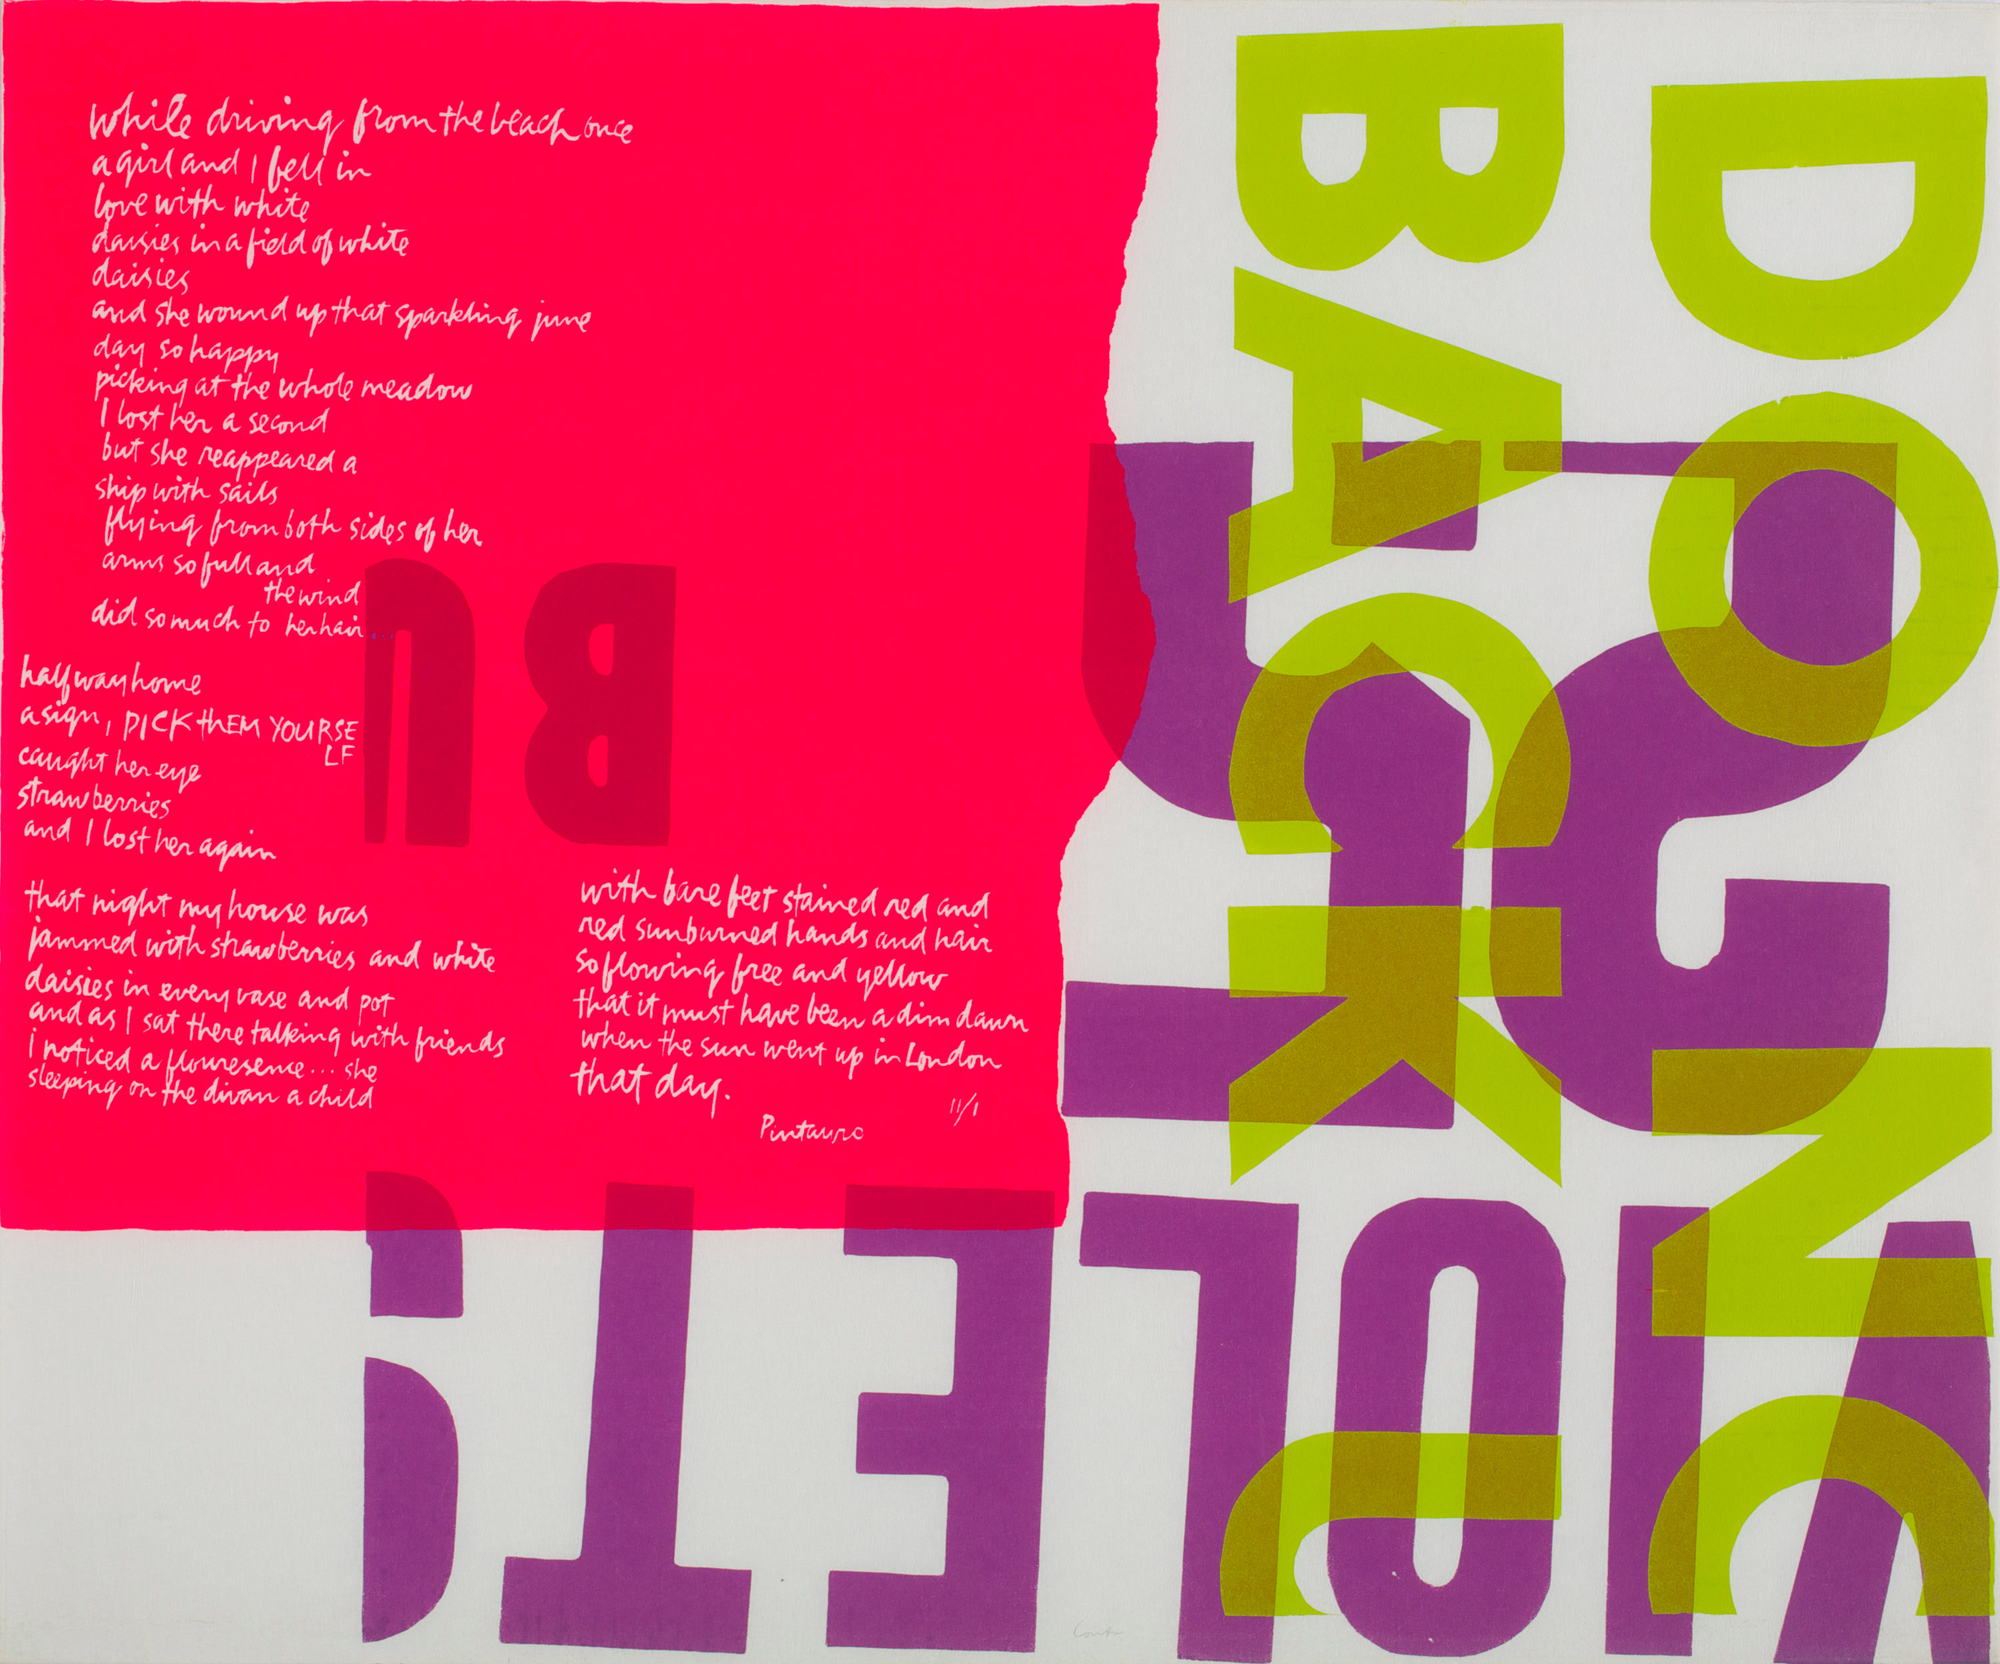 while driving from the beach once
a girl and I fell in
love with white
daisies in a field of white
daisies
and she wound up that sparkling june
day so happy
picking at the whole meadow
I lost her a second
but she reappeared a
ship with sails
flying from both sides of her
arms so full and
the wind
did so much to her hair...
halfway home
a sign, PICK thEM YOURSE
LF
caught her eye
strawberries
and I lost her again
that night my house was
jammed with strawberries and white
daisies in every vase and pot
and as I sat there talking with friends
i noticed a flouresence... she
sleeping on the divan a child
with bare feet stained red and
red sunburned hands and hair
so flowing free and yellow
that it must have been a dim dawn
when the sun went up in London
that day.
Pintauro
11/1
DO NC
BACK
VIOLET
BU